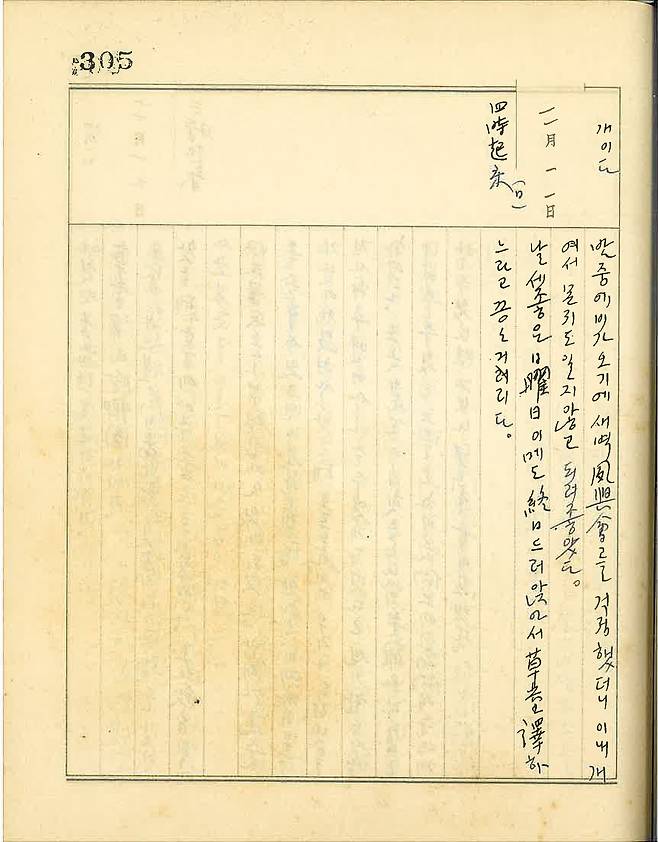 305
개이다
一一月 一一日
(日)
四時起床
밤중에 비가 오기에 새벽 夙興會를 걱정했더니 이내 개
여서 몬지도 일지 않고 되려 좋았다。
날세 좋은 日曜日이메도 終日 드러앉아서 草 譯하
느라고 끙소거려리다。